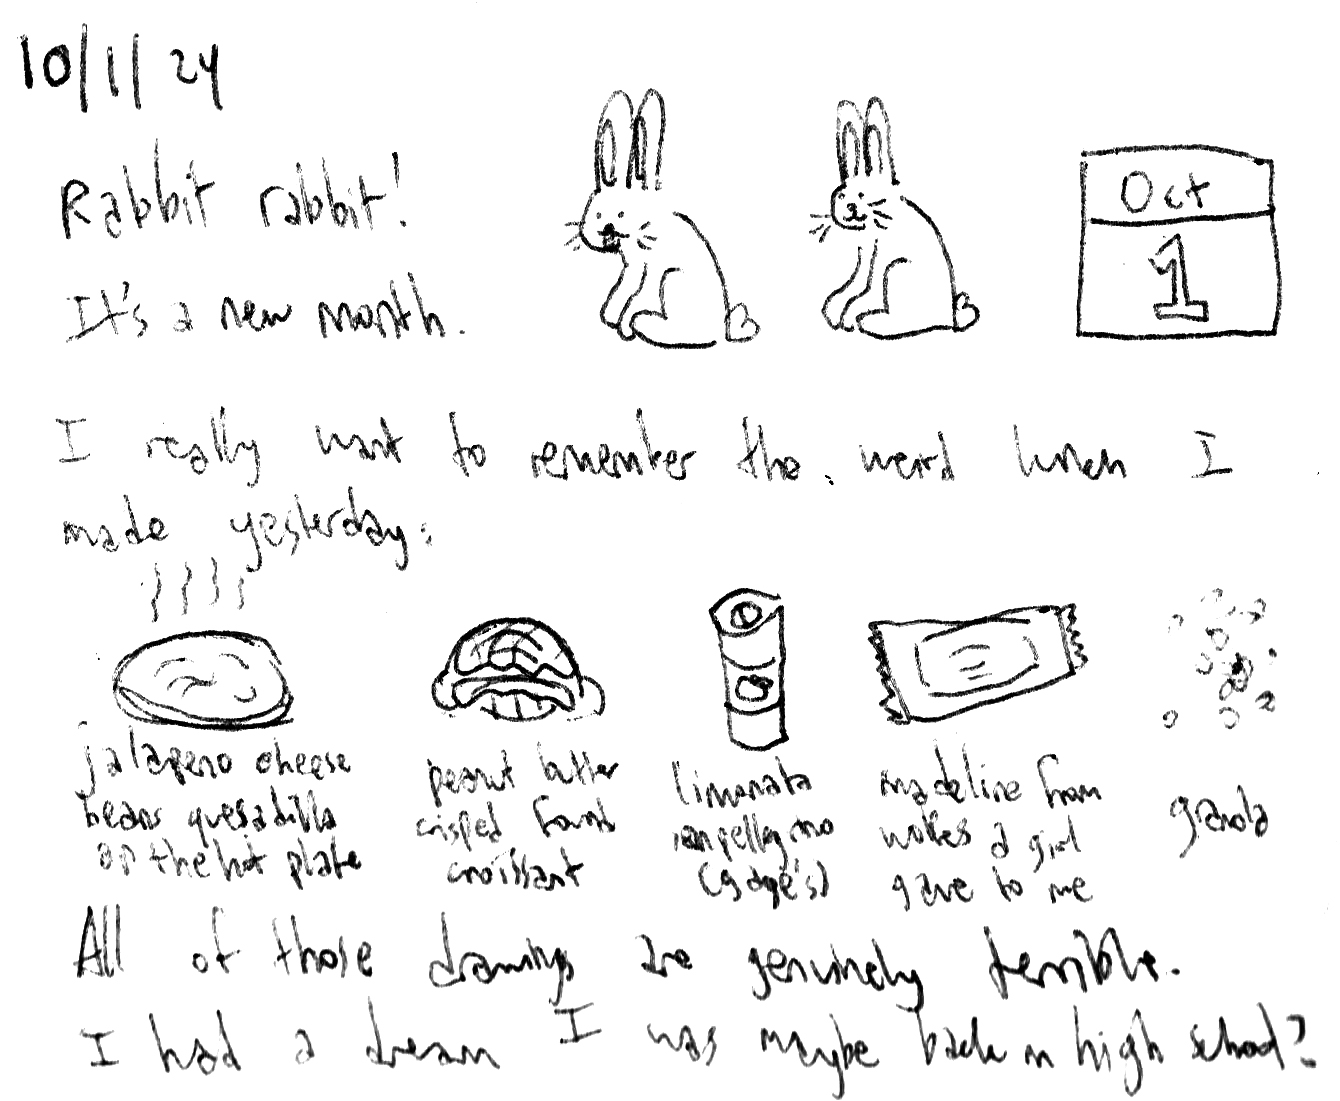 10/1/24
Rabbit rabbit!
It's a new month.
Oct
1
I really want to remember the weird lunch I
made yesterday:
jalapeno cheese
beans quesadilla
on the hot plate
peanut butter
crisped
croissant
limonata
(Gage's)
madeline from
a girl
gave to me
granola
All of those drawings are genuinely terrible.
I had a dream I was maybe back in high school?